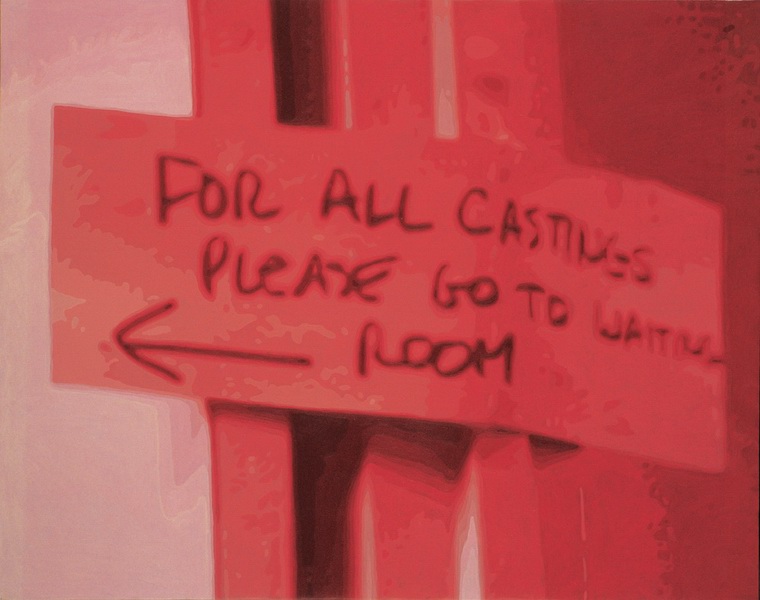 FOR ALL CASTINGS
PLEASE GO TO WAITING
ROOM